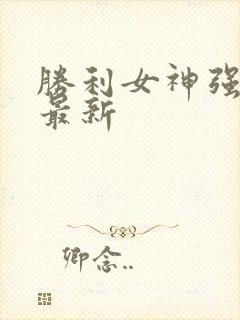 勝利女神强
最新
卿念..